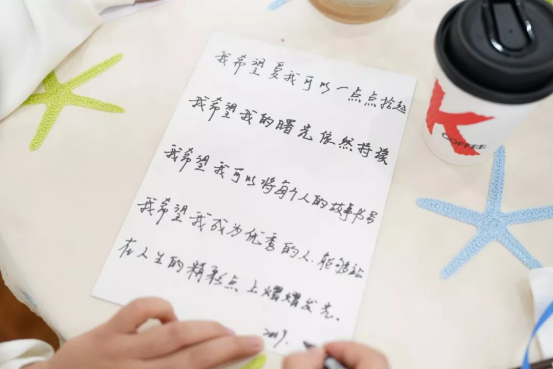 我希望夏我可以一点点拾起
我希望我的曙光依然持续
我希望我可以将每个人的故事书写
我希望我成为优秀的人.能够站
在人生的精彩点上熠熠发光、
2019.
K
COFFEE